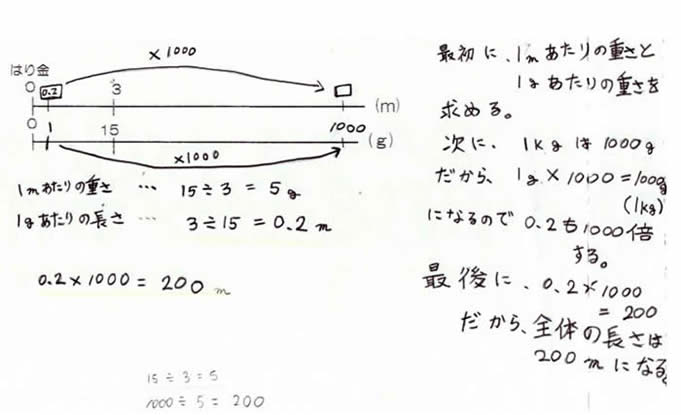 ×1000
はり金
0 0.2 3 (m)
0 1 15 1000 (g)
×1000
1mあたりの重さ … 15÷3=5g
1gあたりの長さ … 3÷15=0.2m
0.2×1000=200m
15÷3=5
1000÷5=200
最初に、1mあたりの重さと
1gあたりの重さを
求める。
次に、1kgは1000g
だから、1g×1000=1000g
(1kg)
になるので0.2も1000倍
する。
最後に、0.2×1000
=200
だから、全体の長さは
200mになる。